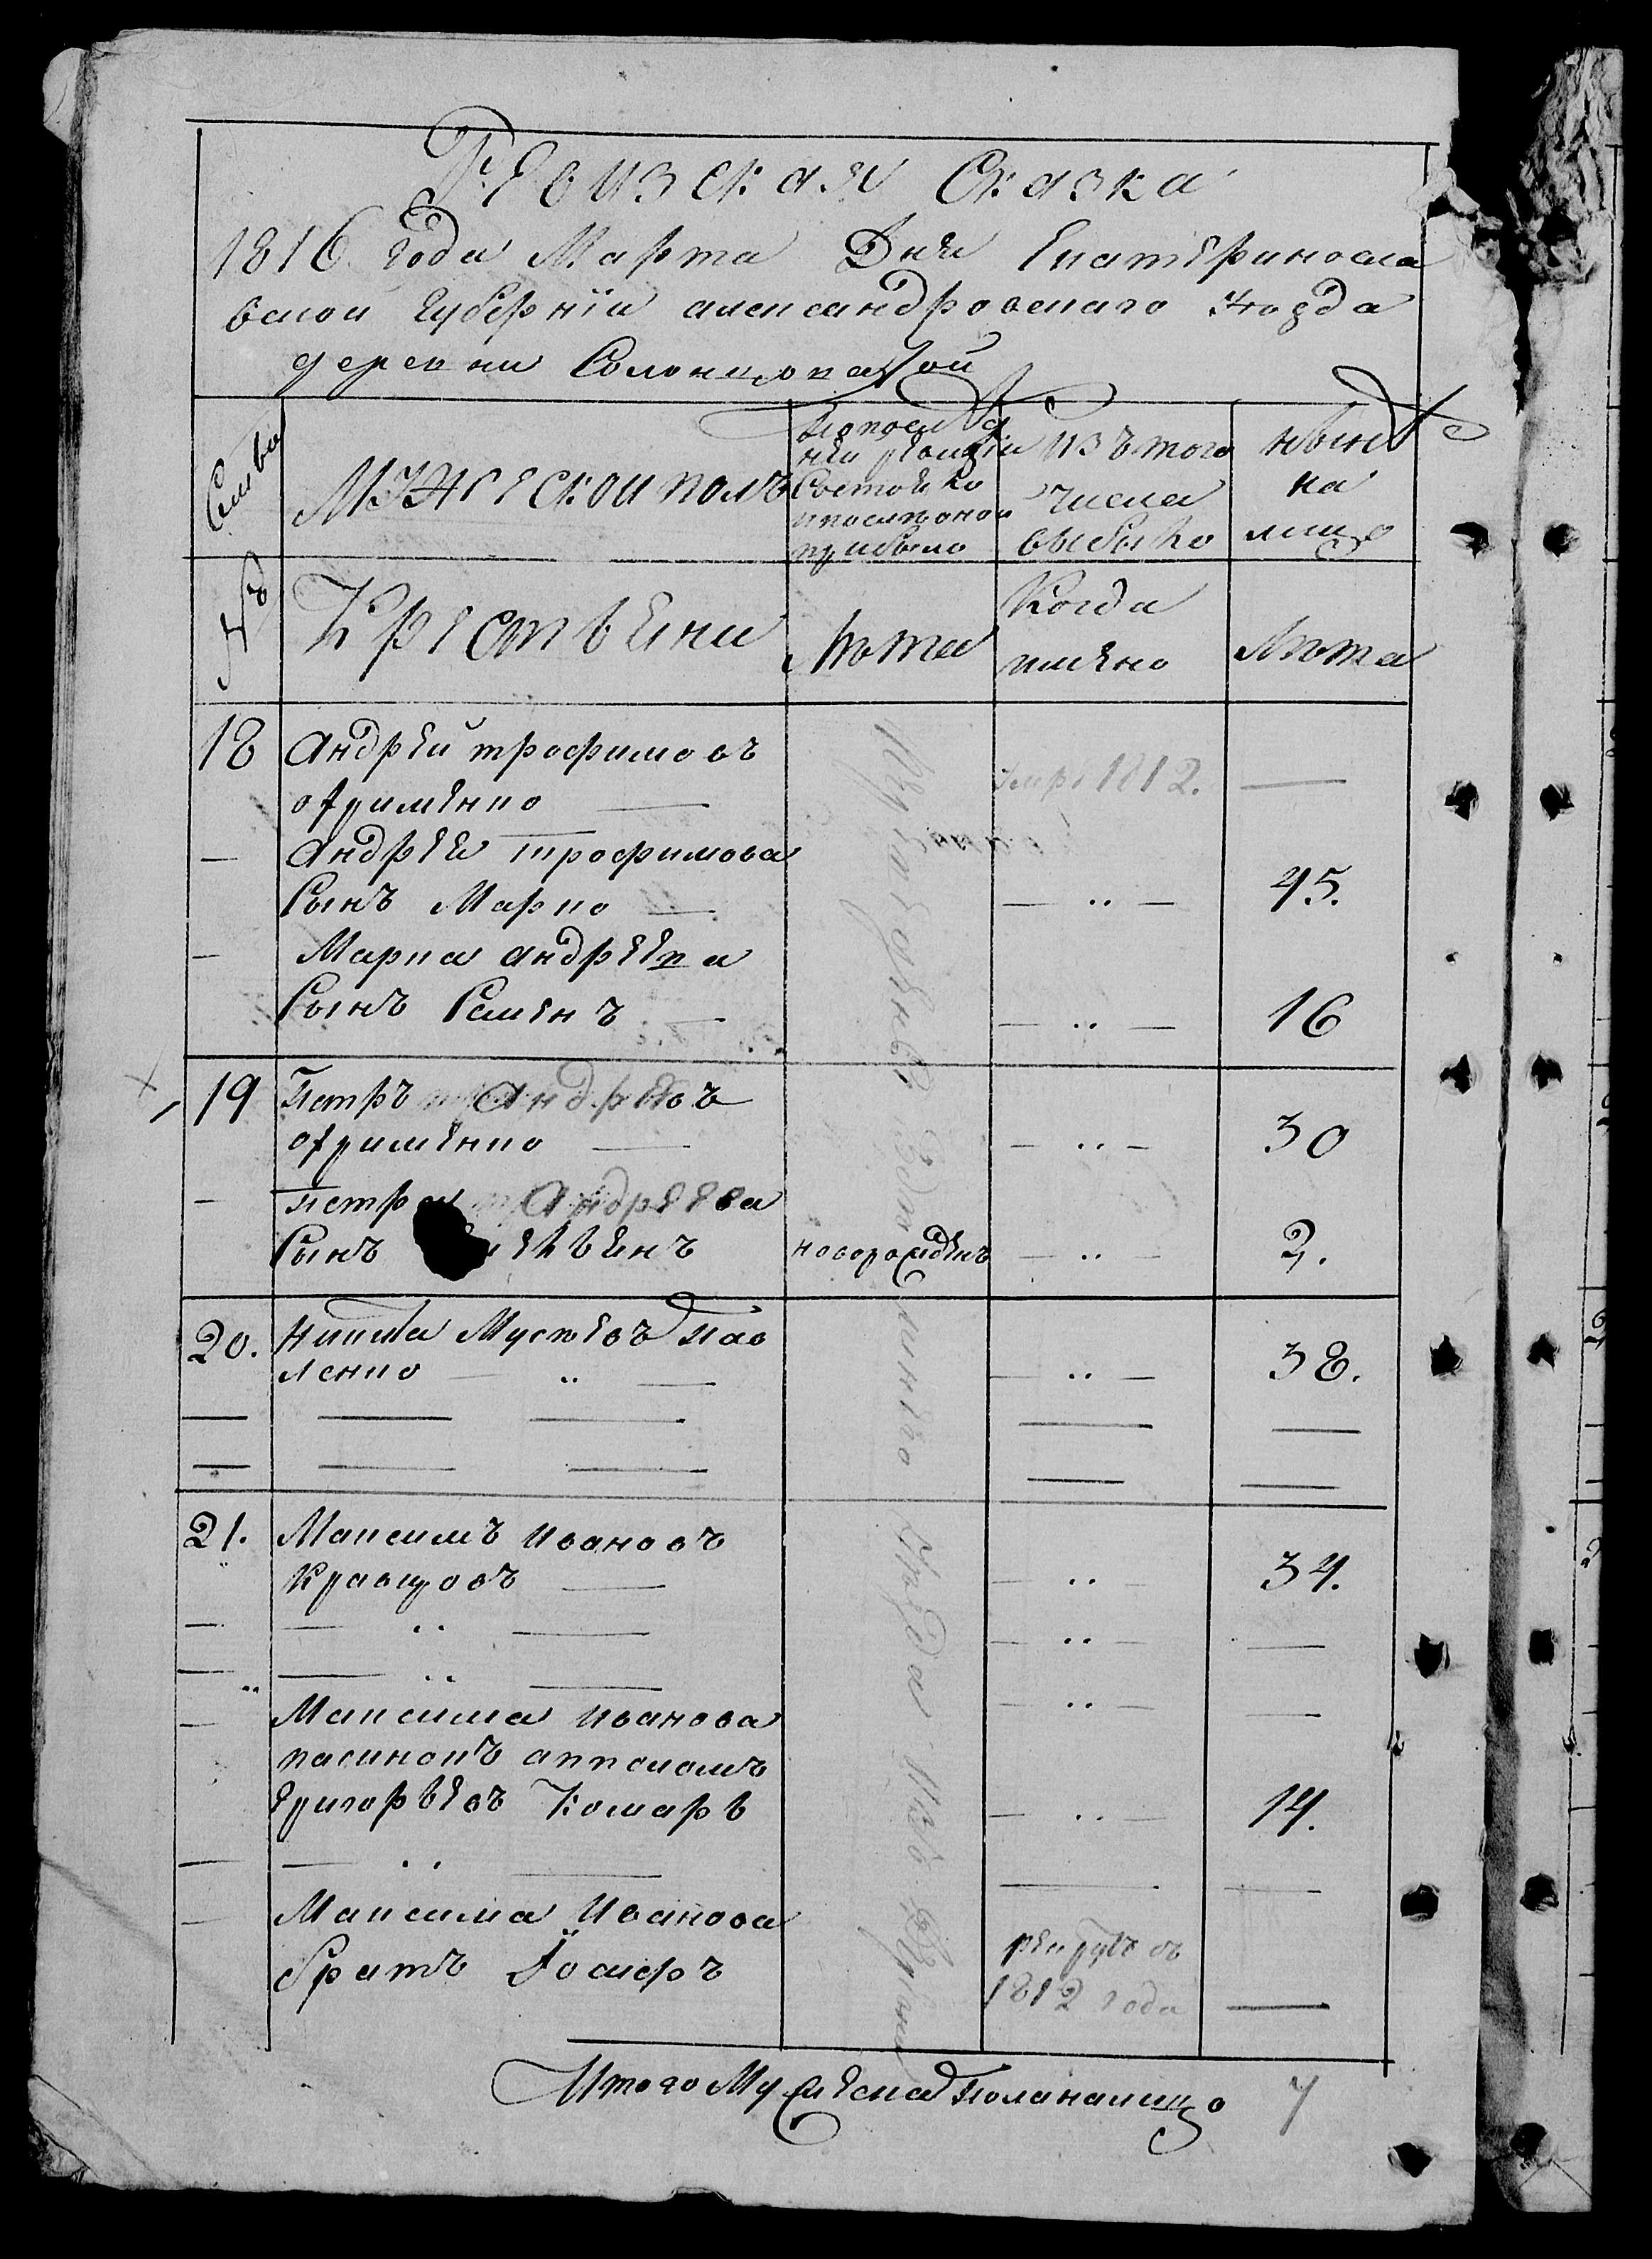 Ревизская Сказка
1816 года Марта Дня Екатериносла
вской Губернïи александровскаго уезда
деревни Солонцоватой
Семьи
Мужеской полъ
По послед
ней ревизïи
Состояло
и после оной
прибыло
Изъ того
числа
выбыло
ныне
на
лицо
№
Крестьяни
Лѣта
Когда
имено
Лѣта
18 Андрей трофимовъ
охрименко —
умре 1812. —
— Андрея трофимова
Сынъ Марко — — .. — 45.
— Марка андреева
Сынъ Семенъ — — .. — 16
19 Петръ Андреевъ
охрименко — — .. — 30
— Петра Андреева
Сынъ новорожденъ — .. — 2.
20. Никита Мусѣевъ пав
ленко — .. — — .. — 38.
21. Максимъ Ивановъ
Кравцовъ — — .. — 34.
— Максима Иванова
пасинокъ
григорьевъ Комарь — .. — 14.
Максима Иванова
братъ Iосифъ
рекрутъ въ
1812 года —
Итого Мужеска пола налицо 7